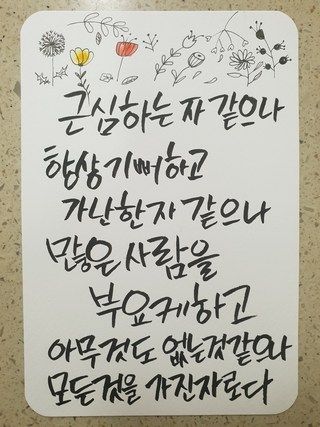 근심하는 자 같으나
항상 기뻐하고
가난한 자 같으나
많은 사람을
부요케하고
아무것도 없는것같으나
모든것을 가진자로다